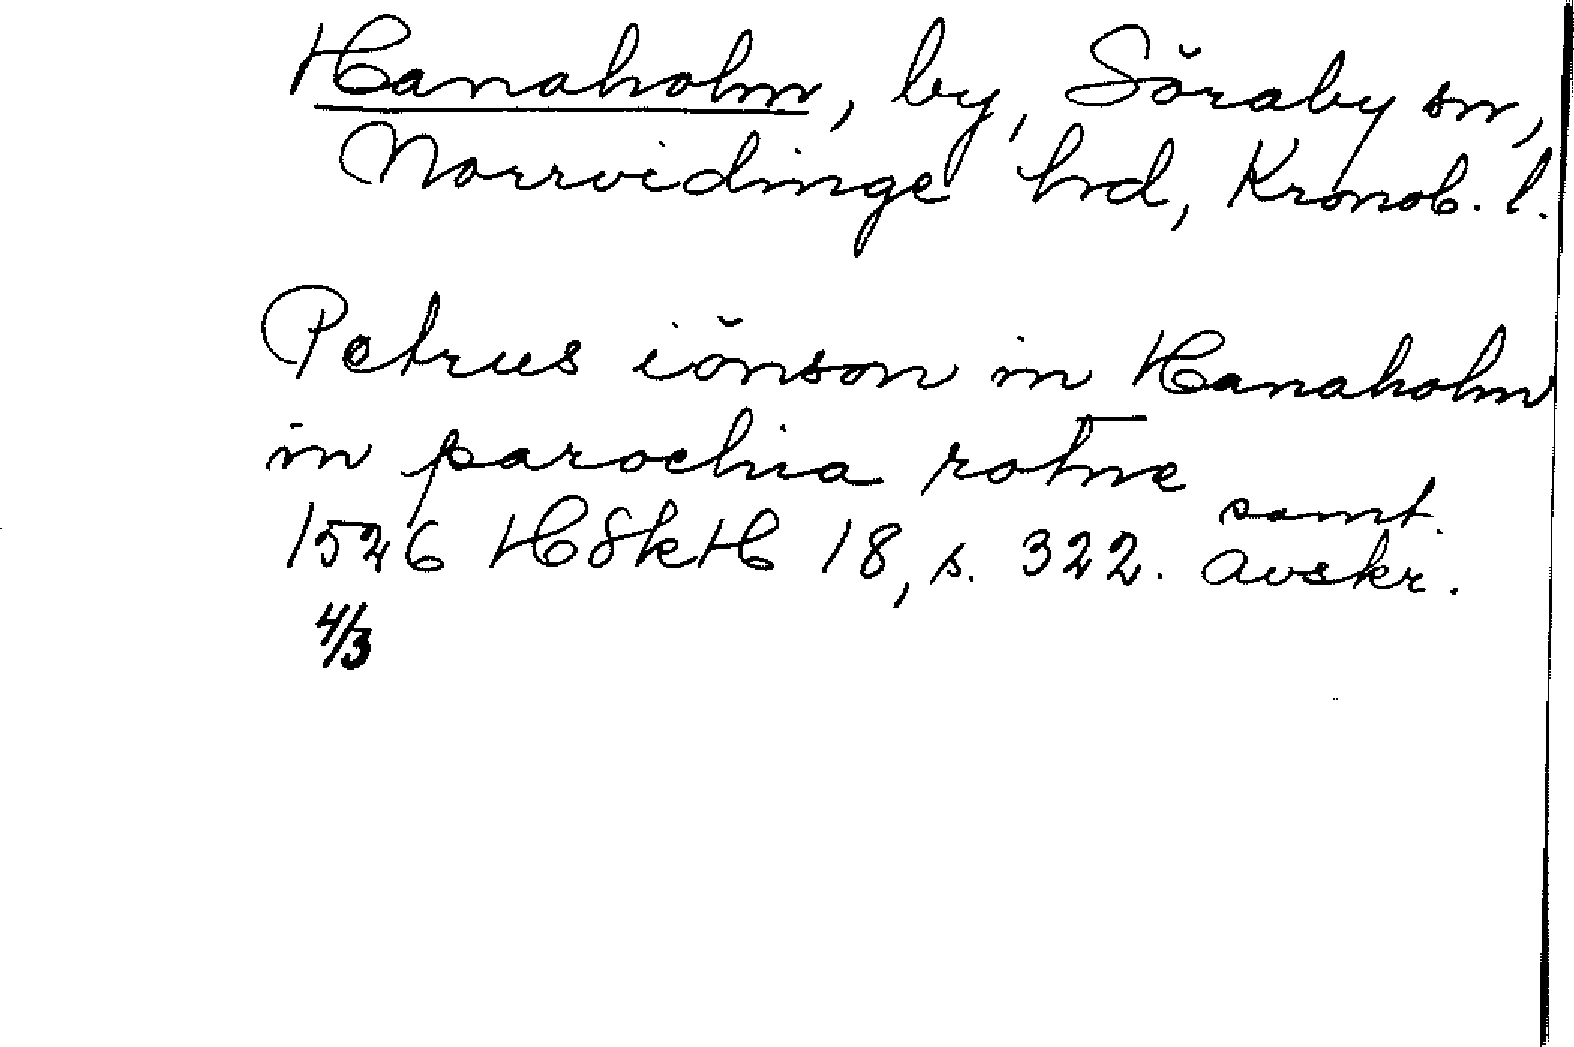 Hanaholm, by, Söraby sn,
Norrvidinge hrd, Kronob. l.
Petrus iönson in Hanaholm
in parochia rotne
samt.
1526 HSkH 18, s. 322. avskr.
4/3